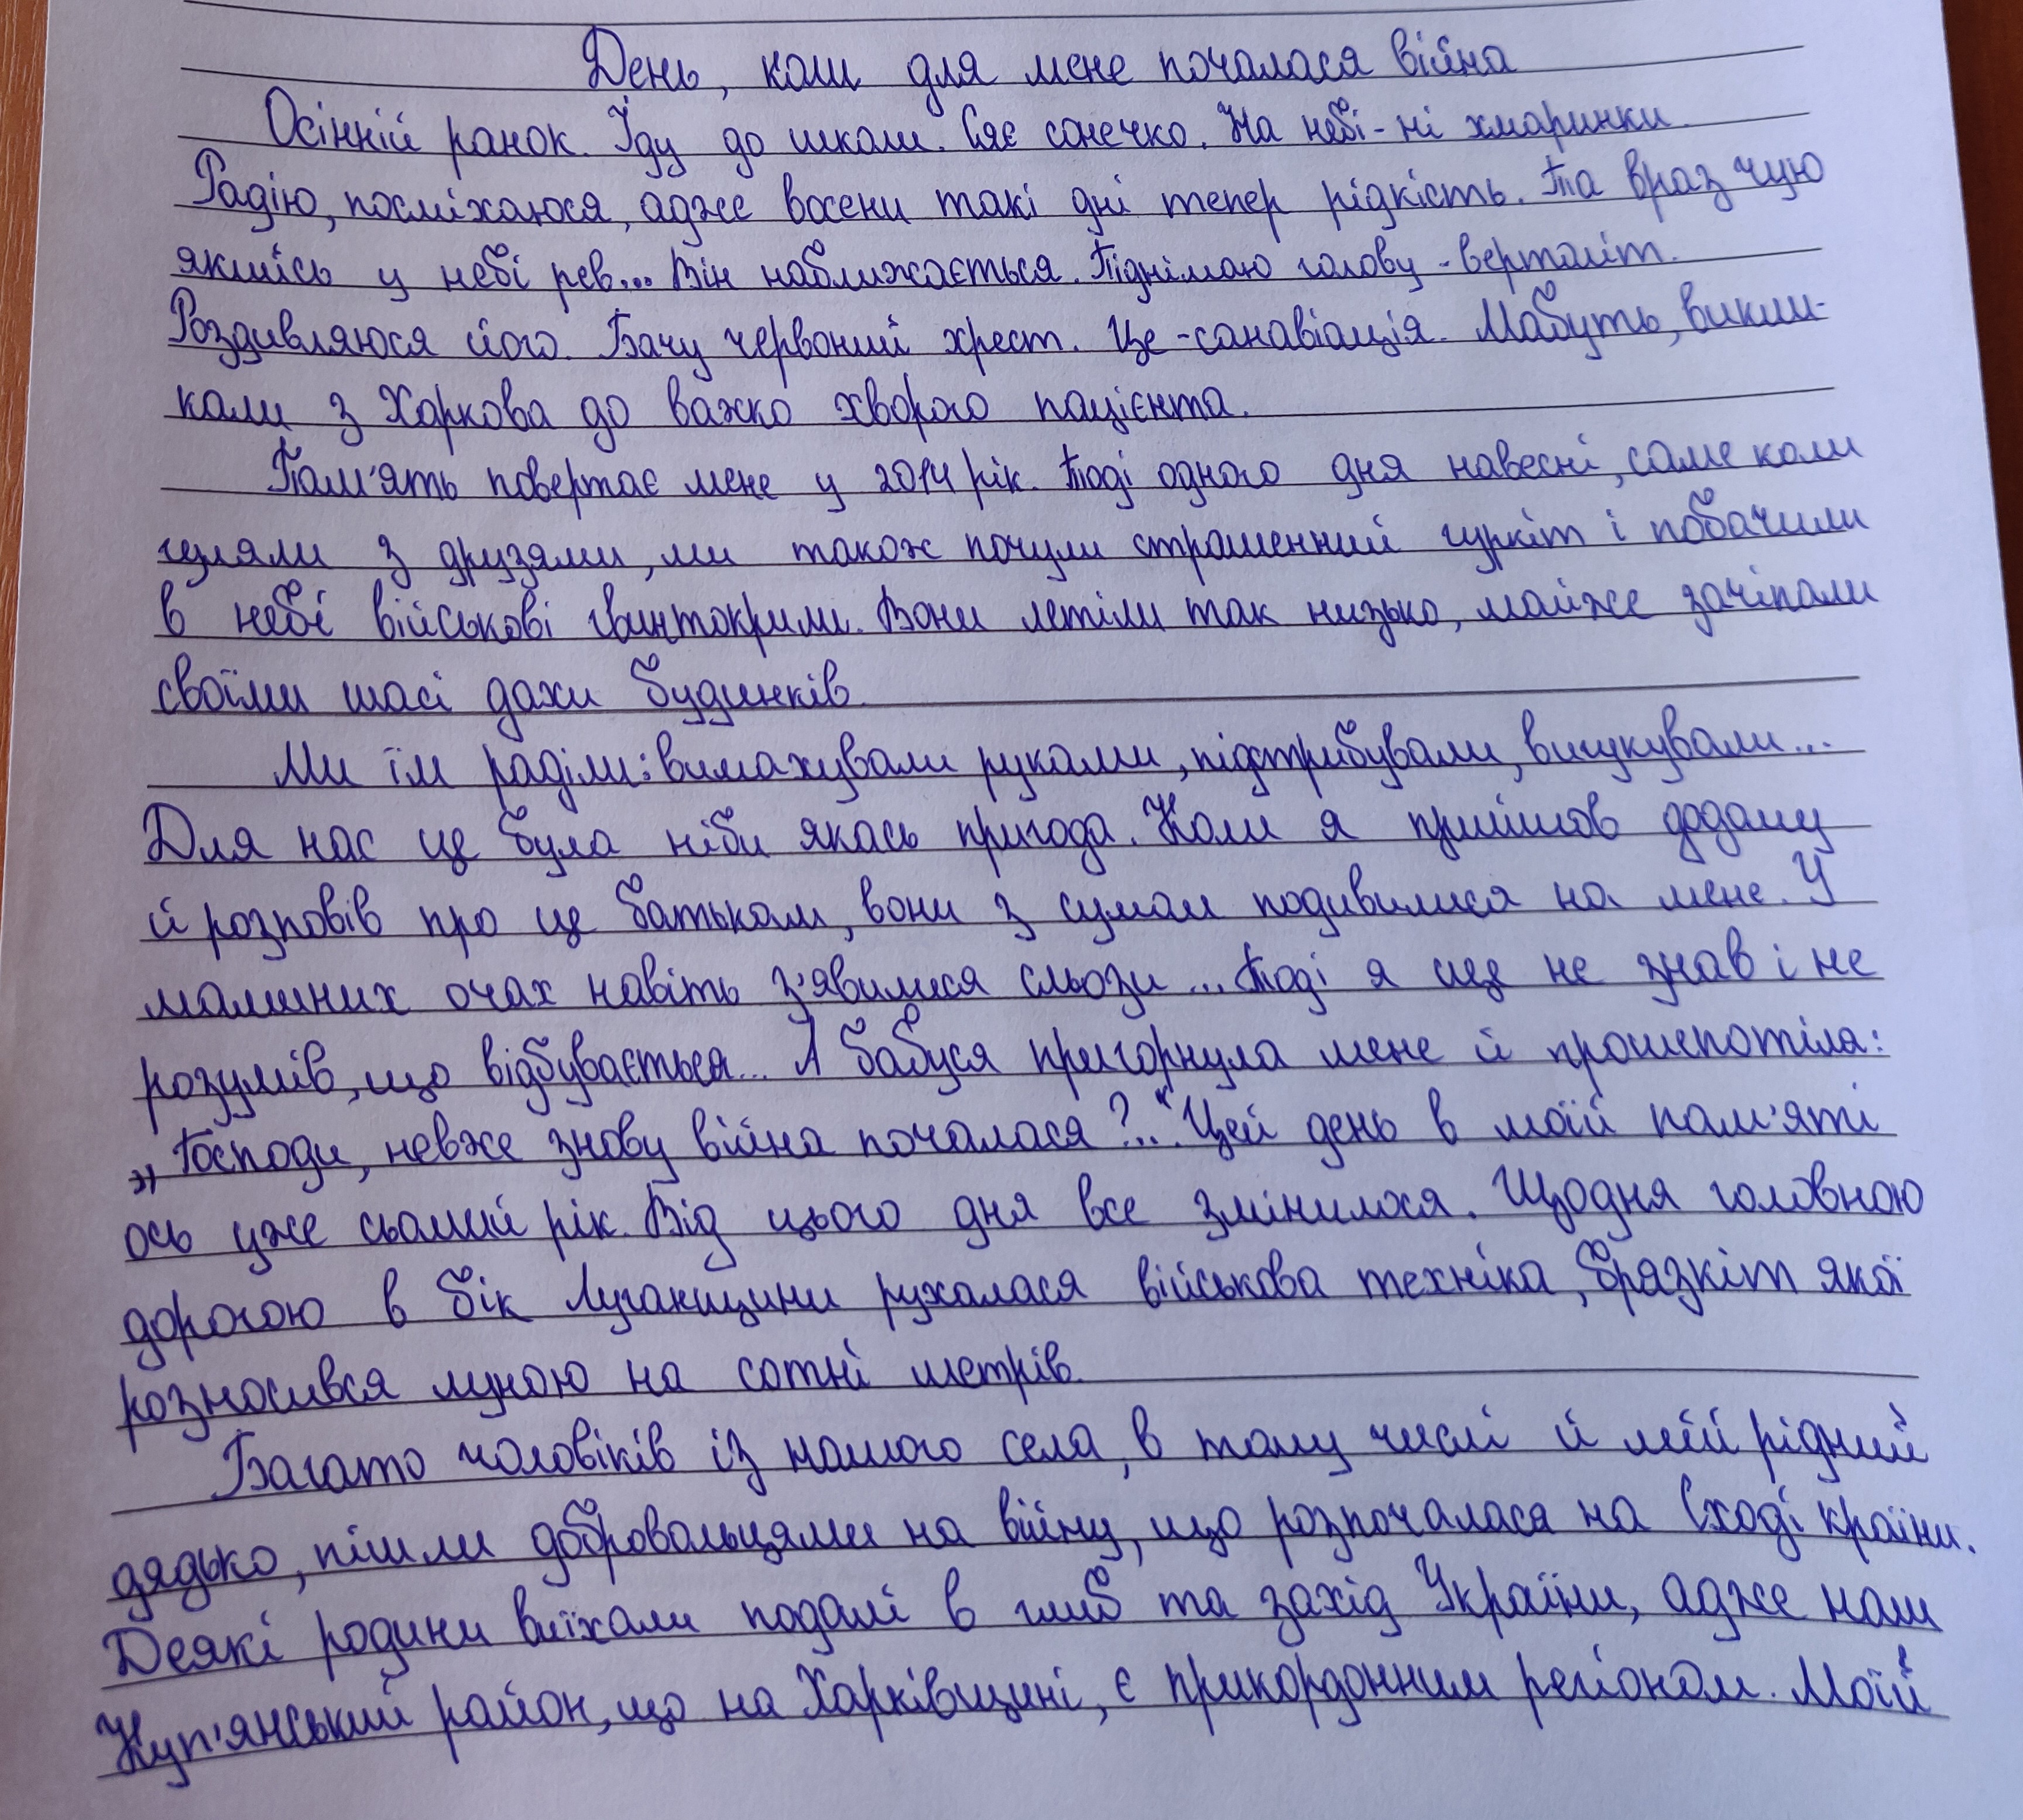 День, коли для мене почалася війна
Осінній ранок. Їду до школи. Сяє сонечко. На небі - ні хмаринки.
Радію, посміхаюся, адже восени такі дні тепер рідкість. Та враз чую
якийсь у небі рев... Він наближається. Піднімаю голову - вертоліт.
Роздивляюся його. Бачу червоний хрест. Це - санавіація. Мабуть, викли-
кали з Харкова до важко хворого пацієнта.
Пам'ять повертає мене у 2014 рік. Тоді одного дня навесні, саме коли
гуляли з друзями, ми також почули страшенний гуркіт і побачили
в небі військові гвинтокрили. Вони летіли так низько, майже зачіпали
своїми шасі дахи будинків.
Ми їм раділи: вимахували руками, підстрибували, вигукували...
Для нас це була ніби якась пригода. Коли я прийшов додому
й розповів про це батькам, вони з сумом подивилися на мене. У
маминих очах навіть з'явилися сльози... Тоді я ще не знав і не
розумів, що відбувається... А бабуся пригорнула мене й прошепотіла:
„Господи, невже знову війна почалася?..." Цей день в моїй пам'яті
ось уже сьомий рік. Від цього дня все змінилося. Щодня головною
дорогою в бік Луганщини рухалася військова техніка, брязкіт якої
розносився луною на сотні метрів.
Багато чоловіків із нашого села, в тому числі й мій рідний
дядько, пішли добровольцями на війну, що розпочалася на Сході країни.
Деякі родини виїхали подалі в глиб та захід України, адже наш
Куп'янський район, що на Харківщині, є прикордонним регіоном. Моїй